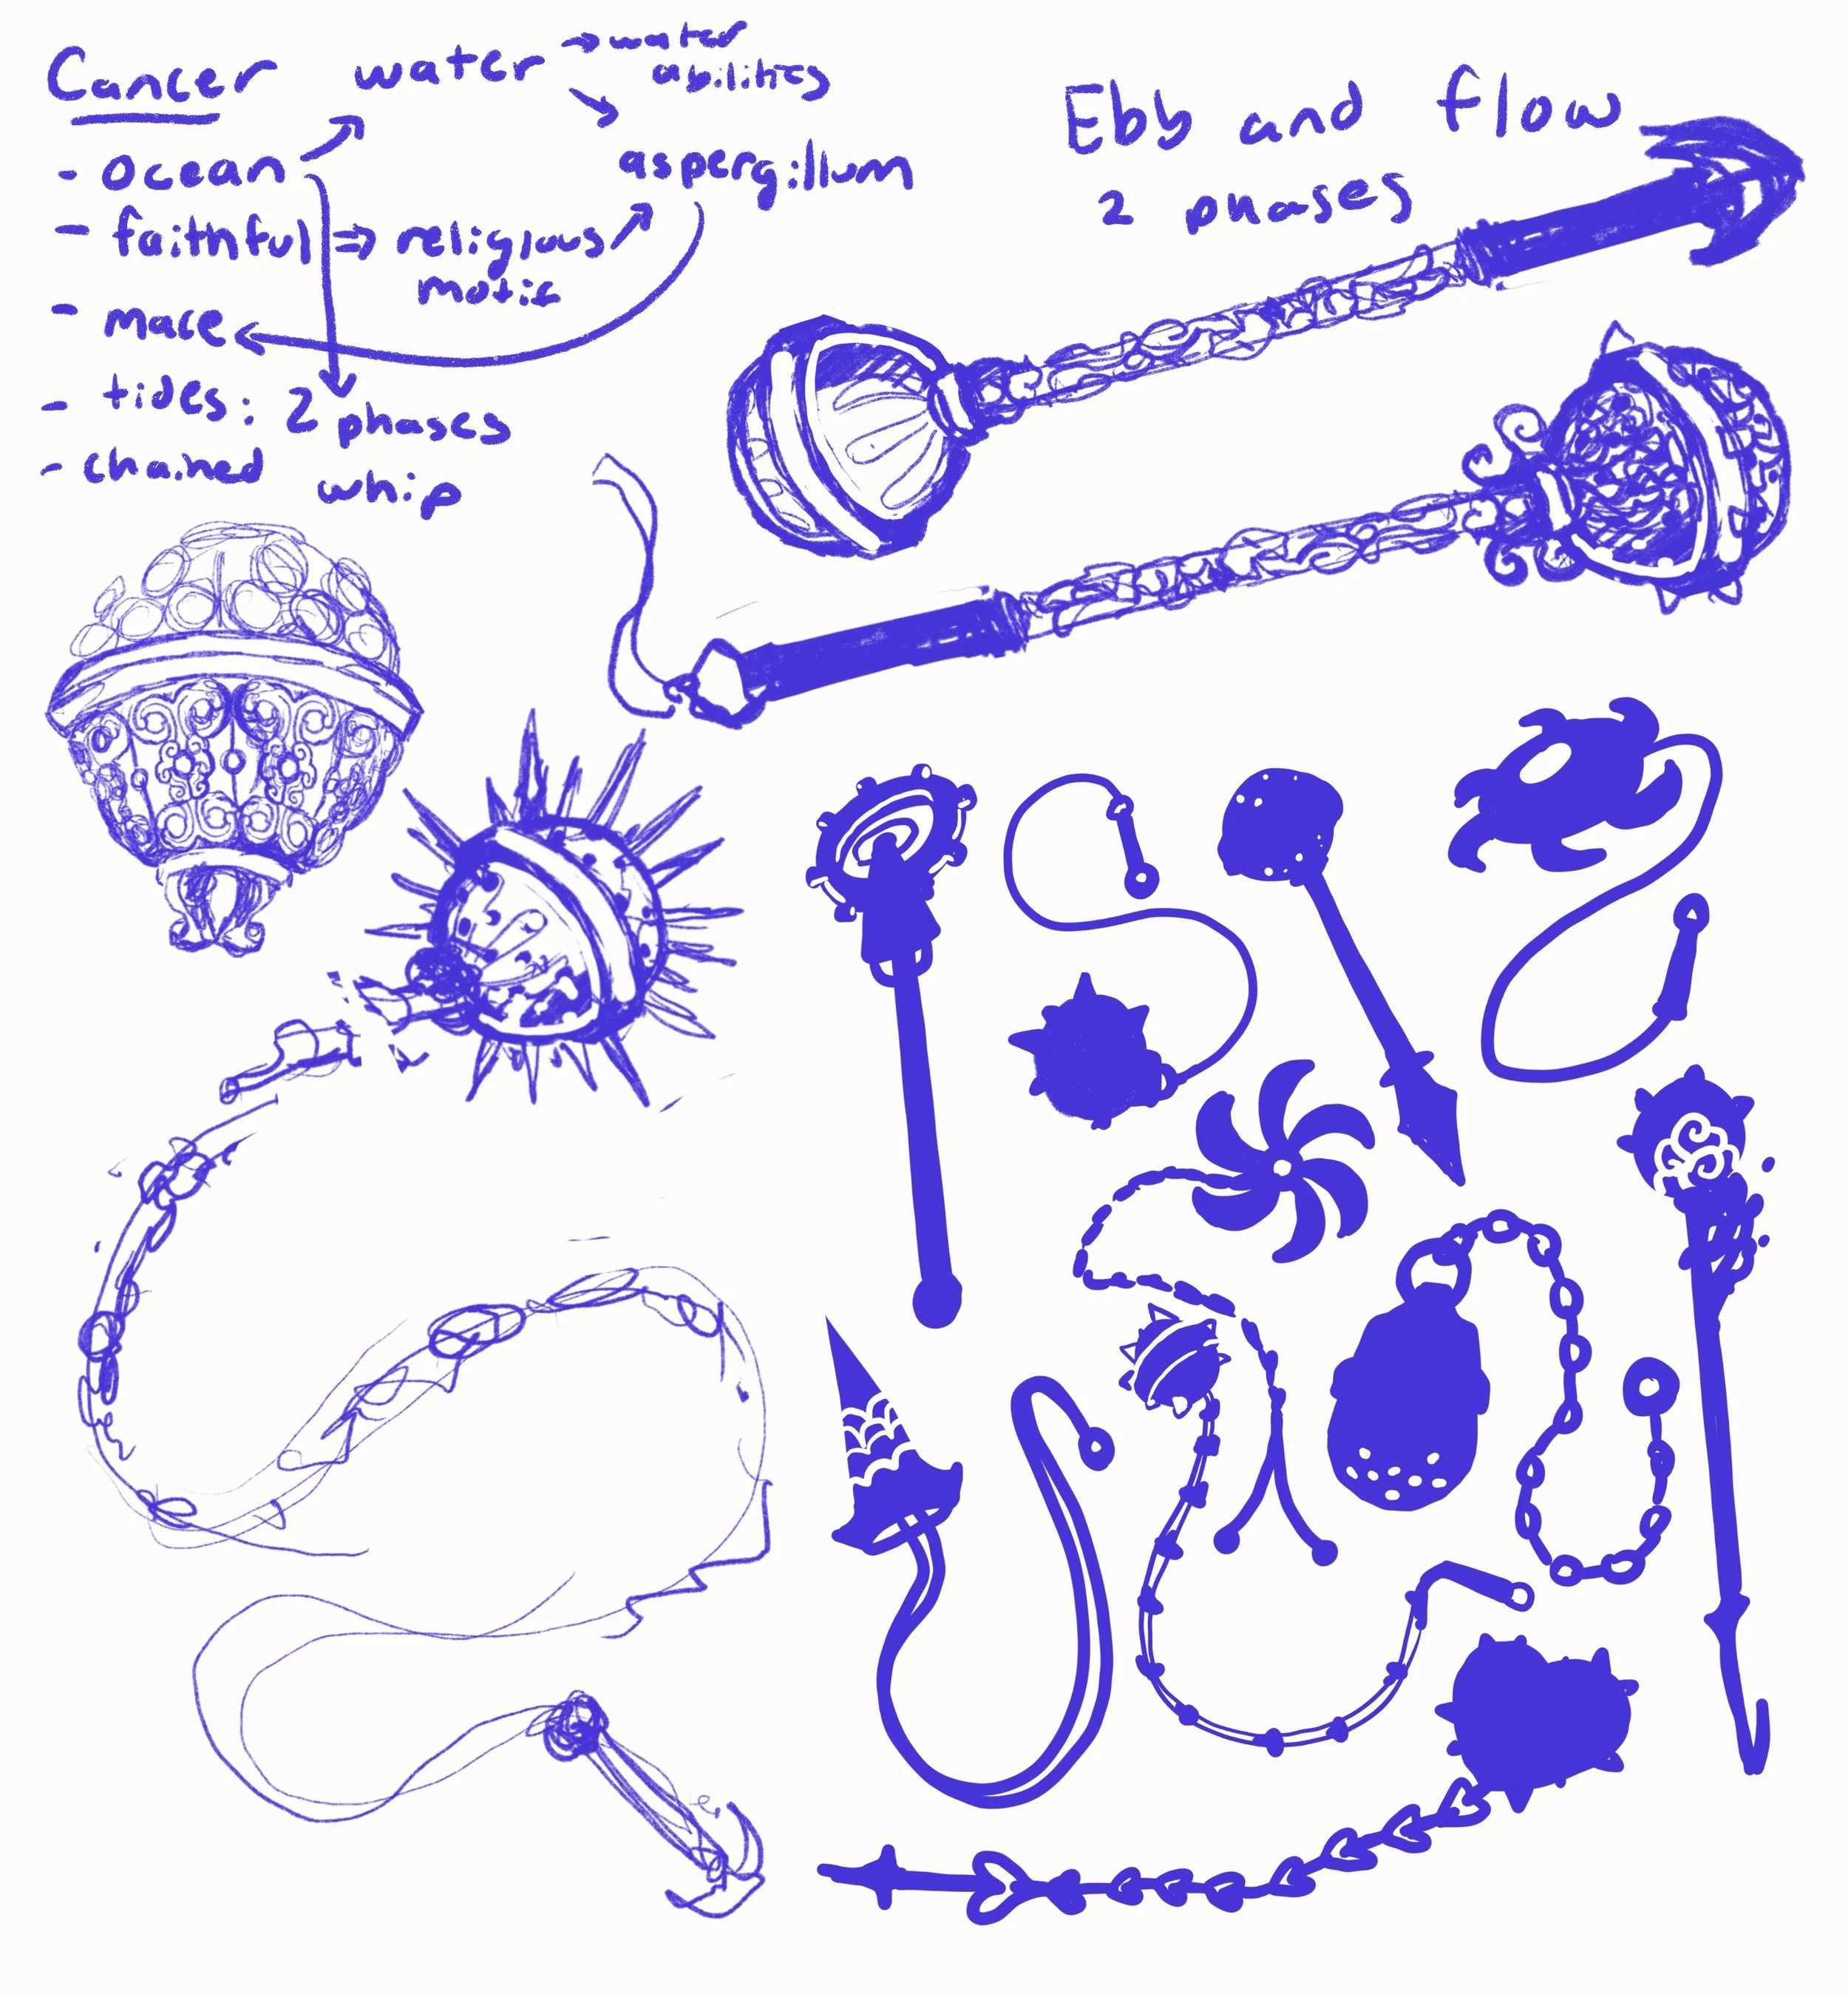 Cancer water → water
abilities
- ocean
aspergillum
- faithful ⇒ religious
motif
- mace
- tides: 2 phases
- chained whip
Ebb and flow
2 phases